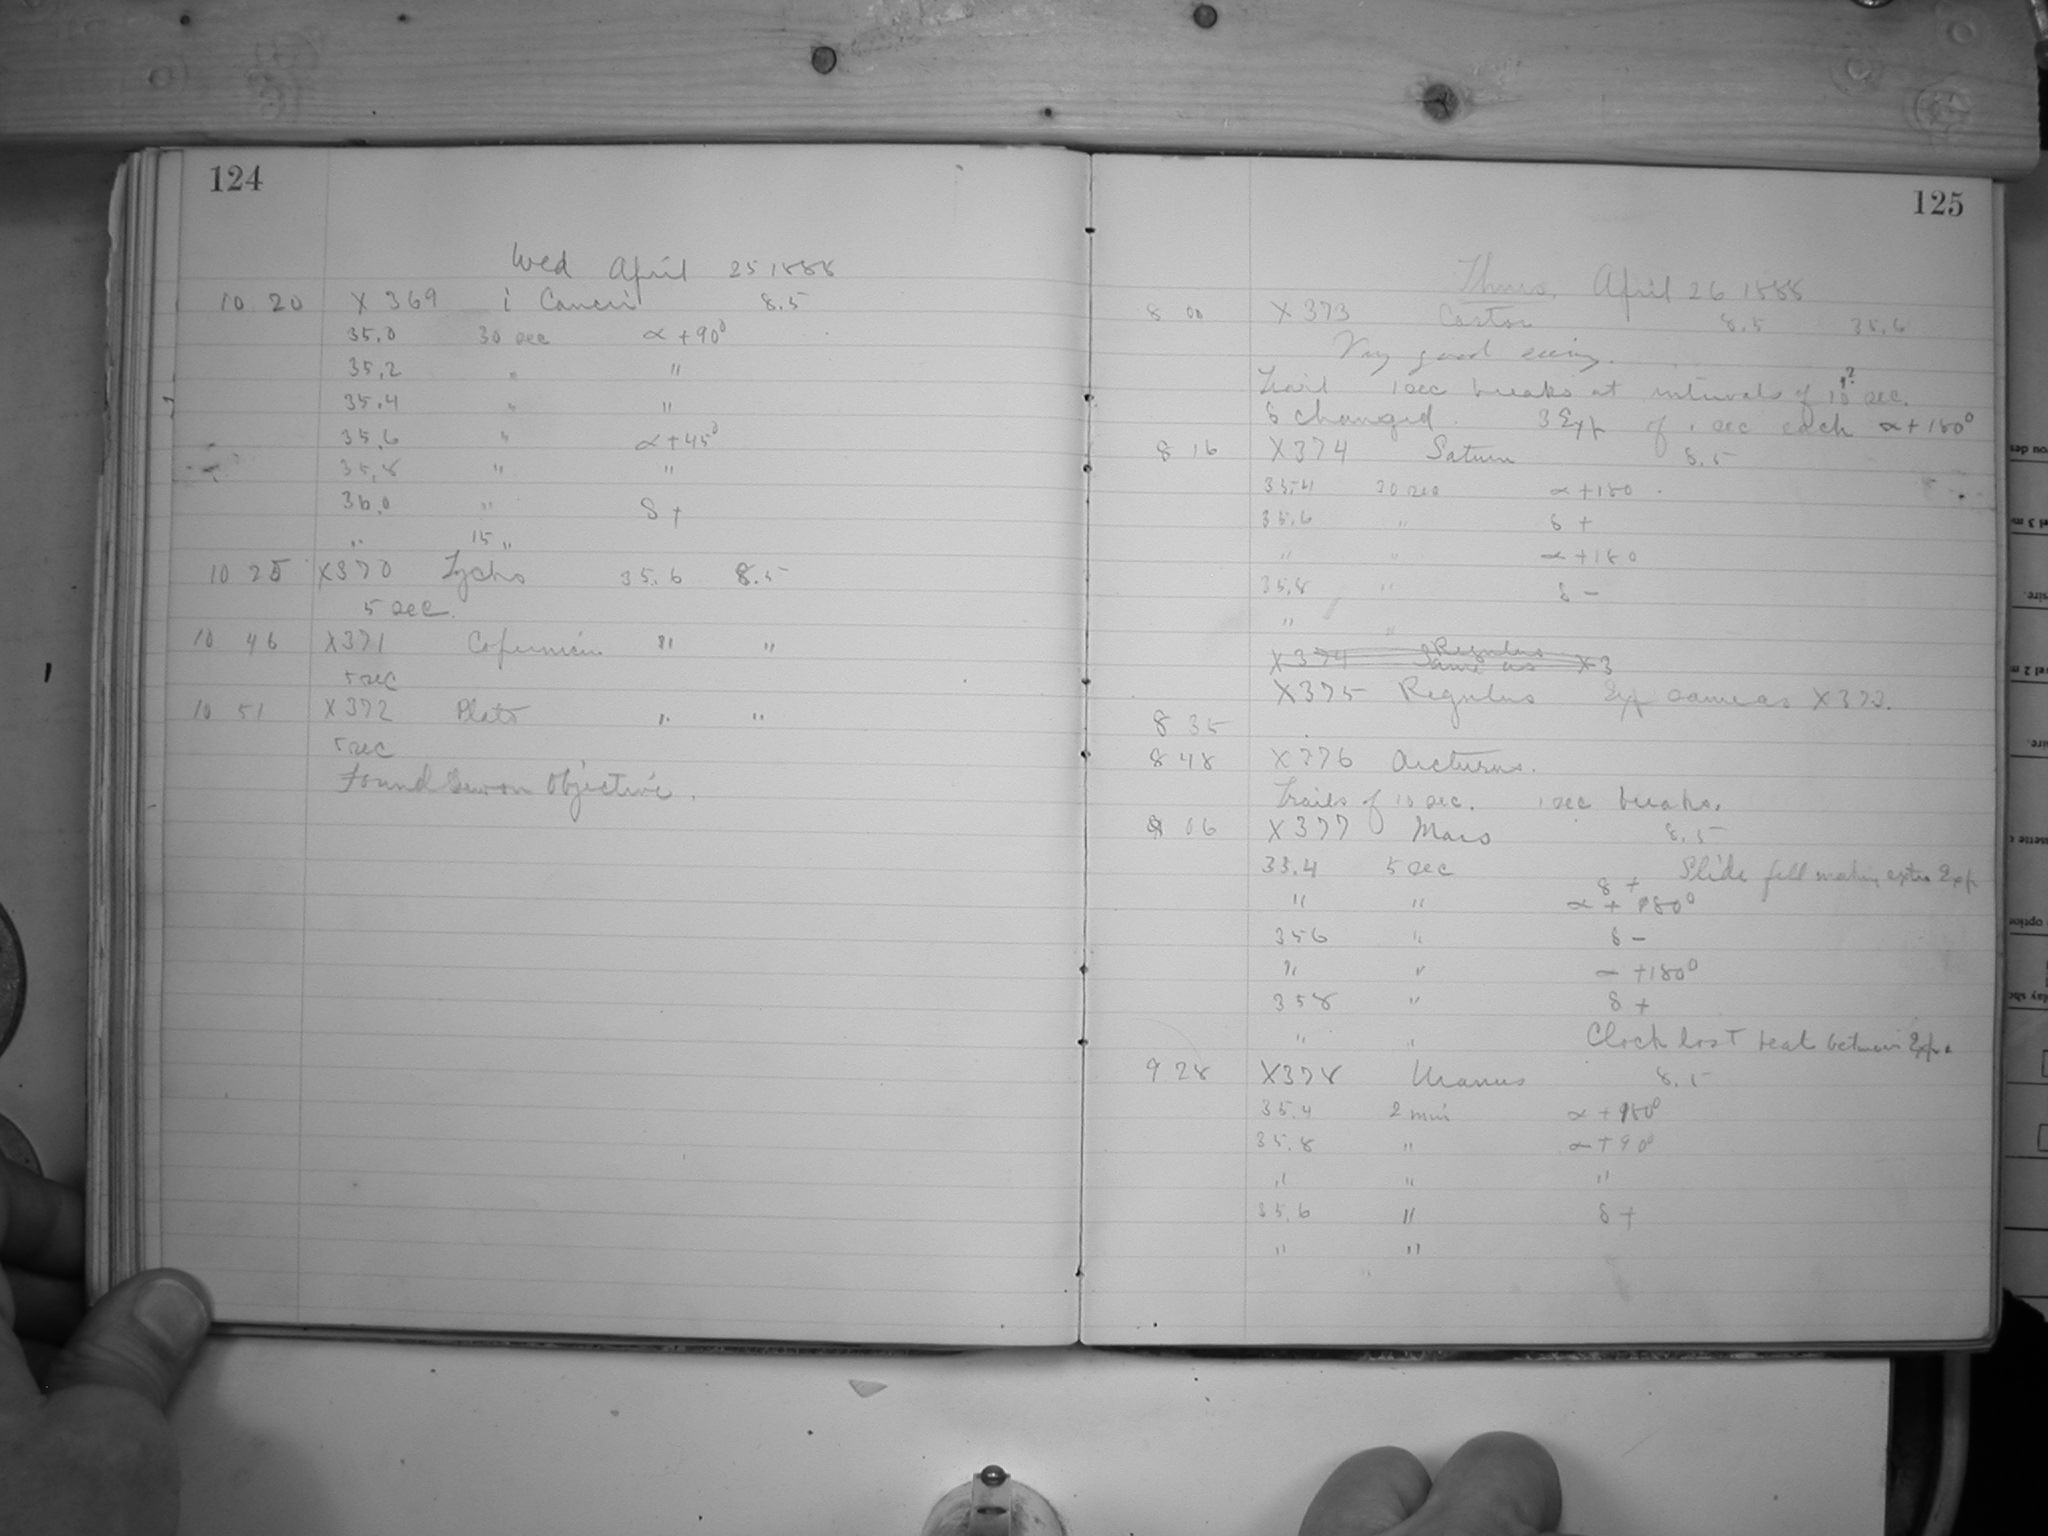 124
Wed April 25 1888
10 20 X 369 i Cancri 8.5
35.0 30 sec α +90°
35.2 " "
35.4 " "
35.6 " α +45°
35.8 " "
36.0 " δ +
" 15 "
10 25 X370 Tycho 35.6 8.5
5 sec.
10 46 X371 Copernicus " "
5 sec
10 51 X 372 Plato " "
5 sec
Found Dew on Objective.
125
Thurs. April 26 1888
8 00 X 373 Castor 8.5 35.6
Very good seeing.
Trail 1 sec breaks at intervals of 10 sec.
δ changed. 3 Exp of 1 sec each α + 180°
8 16 X374 Saturn 8.5
35.4 30 sec α +180
35.6 " δ +
" " α +180
35.8 " δ -
" "
X374 Regulus
Same as X3
X375 Regulus Exp same as X373.
8 35
8 48 X376 Arcturus.
Trails of 10 sec. 1 sec breaks.
9 06 X377 Mars 8.5
35.4 5 sec δ + Slide fell making extra Exp
" " α + 180°
356 " δ -
" " α +180°
358 " δ +
" " Clock lost beat between Exps
9 28 X378 Uranus 8.5
35.4 2 min α +180°
35.8 " α +90°
" " "
35.6 " δ +
" "